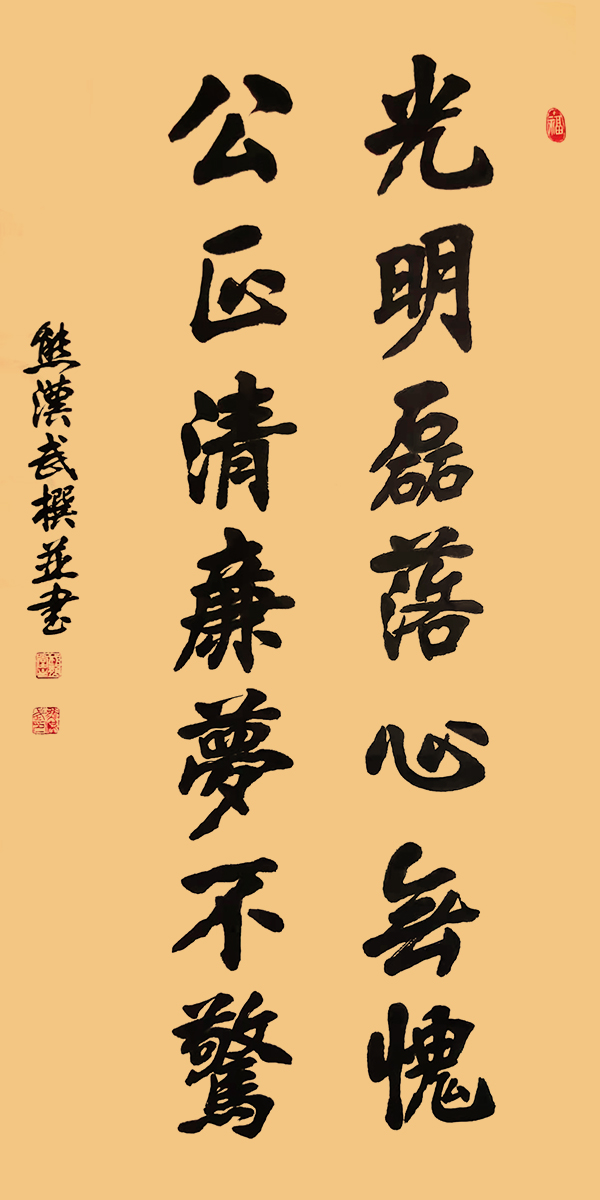 光明磊落心無愧
公正清廉夢不驚
熊漢武撰並書
福